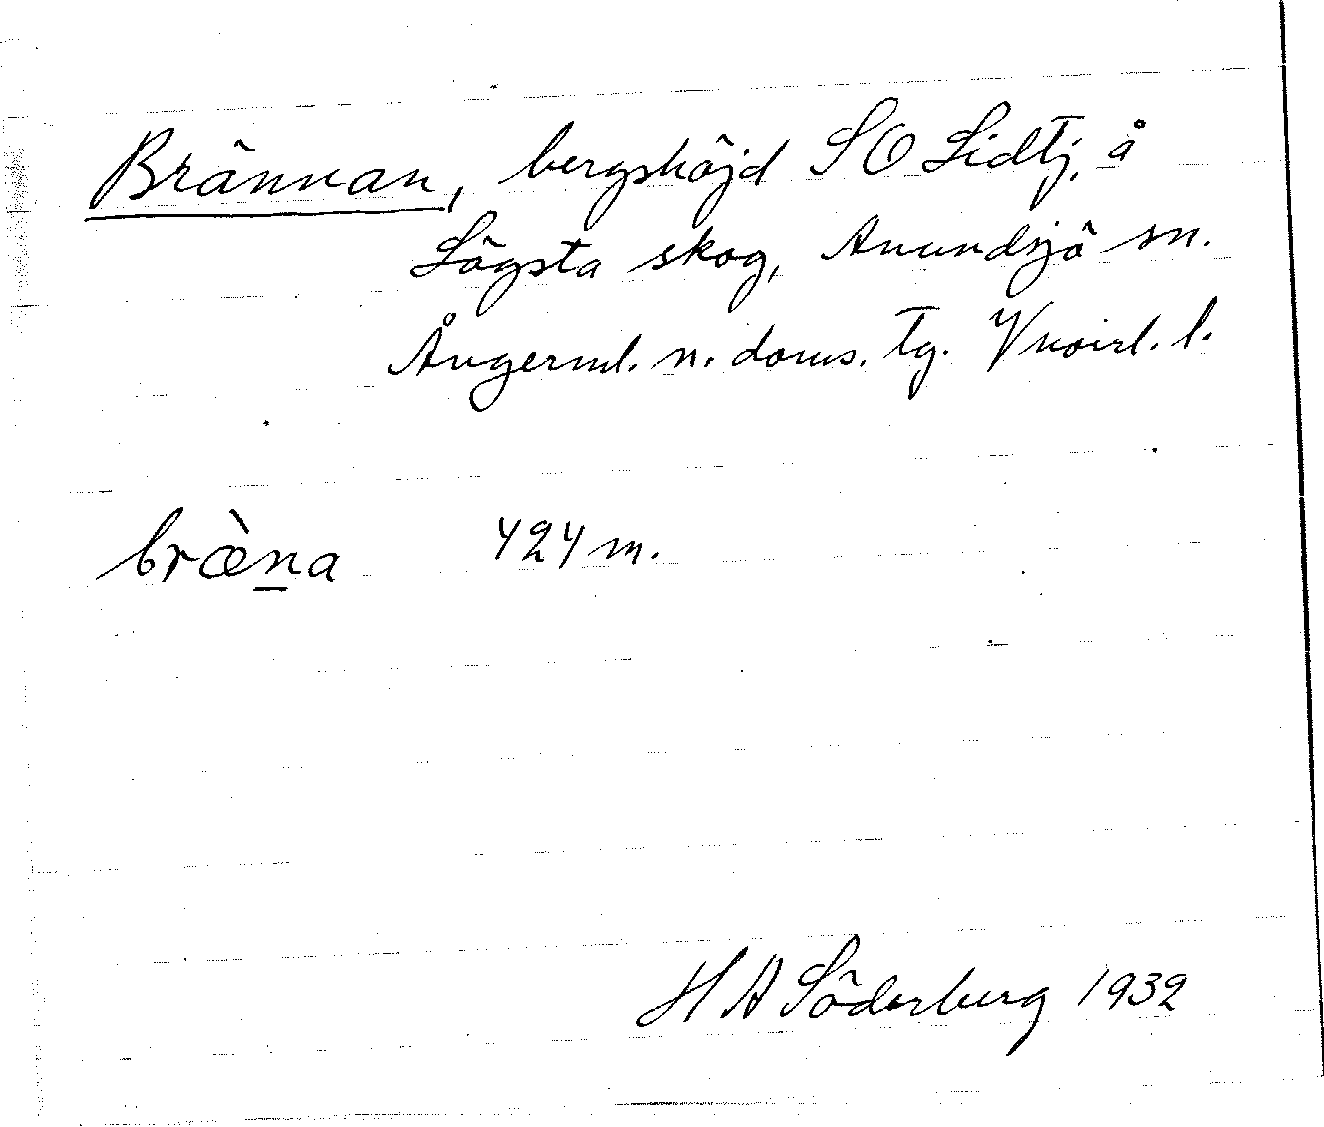 Brännan, bergshöjd SO Lidtj. å
Lögsta skog, Anundsjö sn.
Ångerml. n. doms. tg.
bræ̀n̲a 424 m.
H A Söderberg 1932